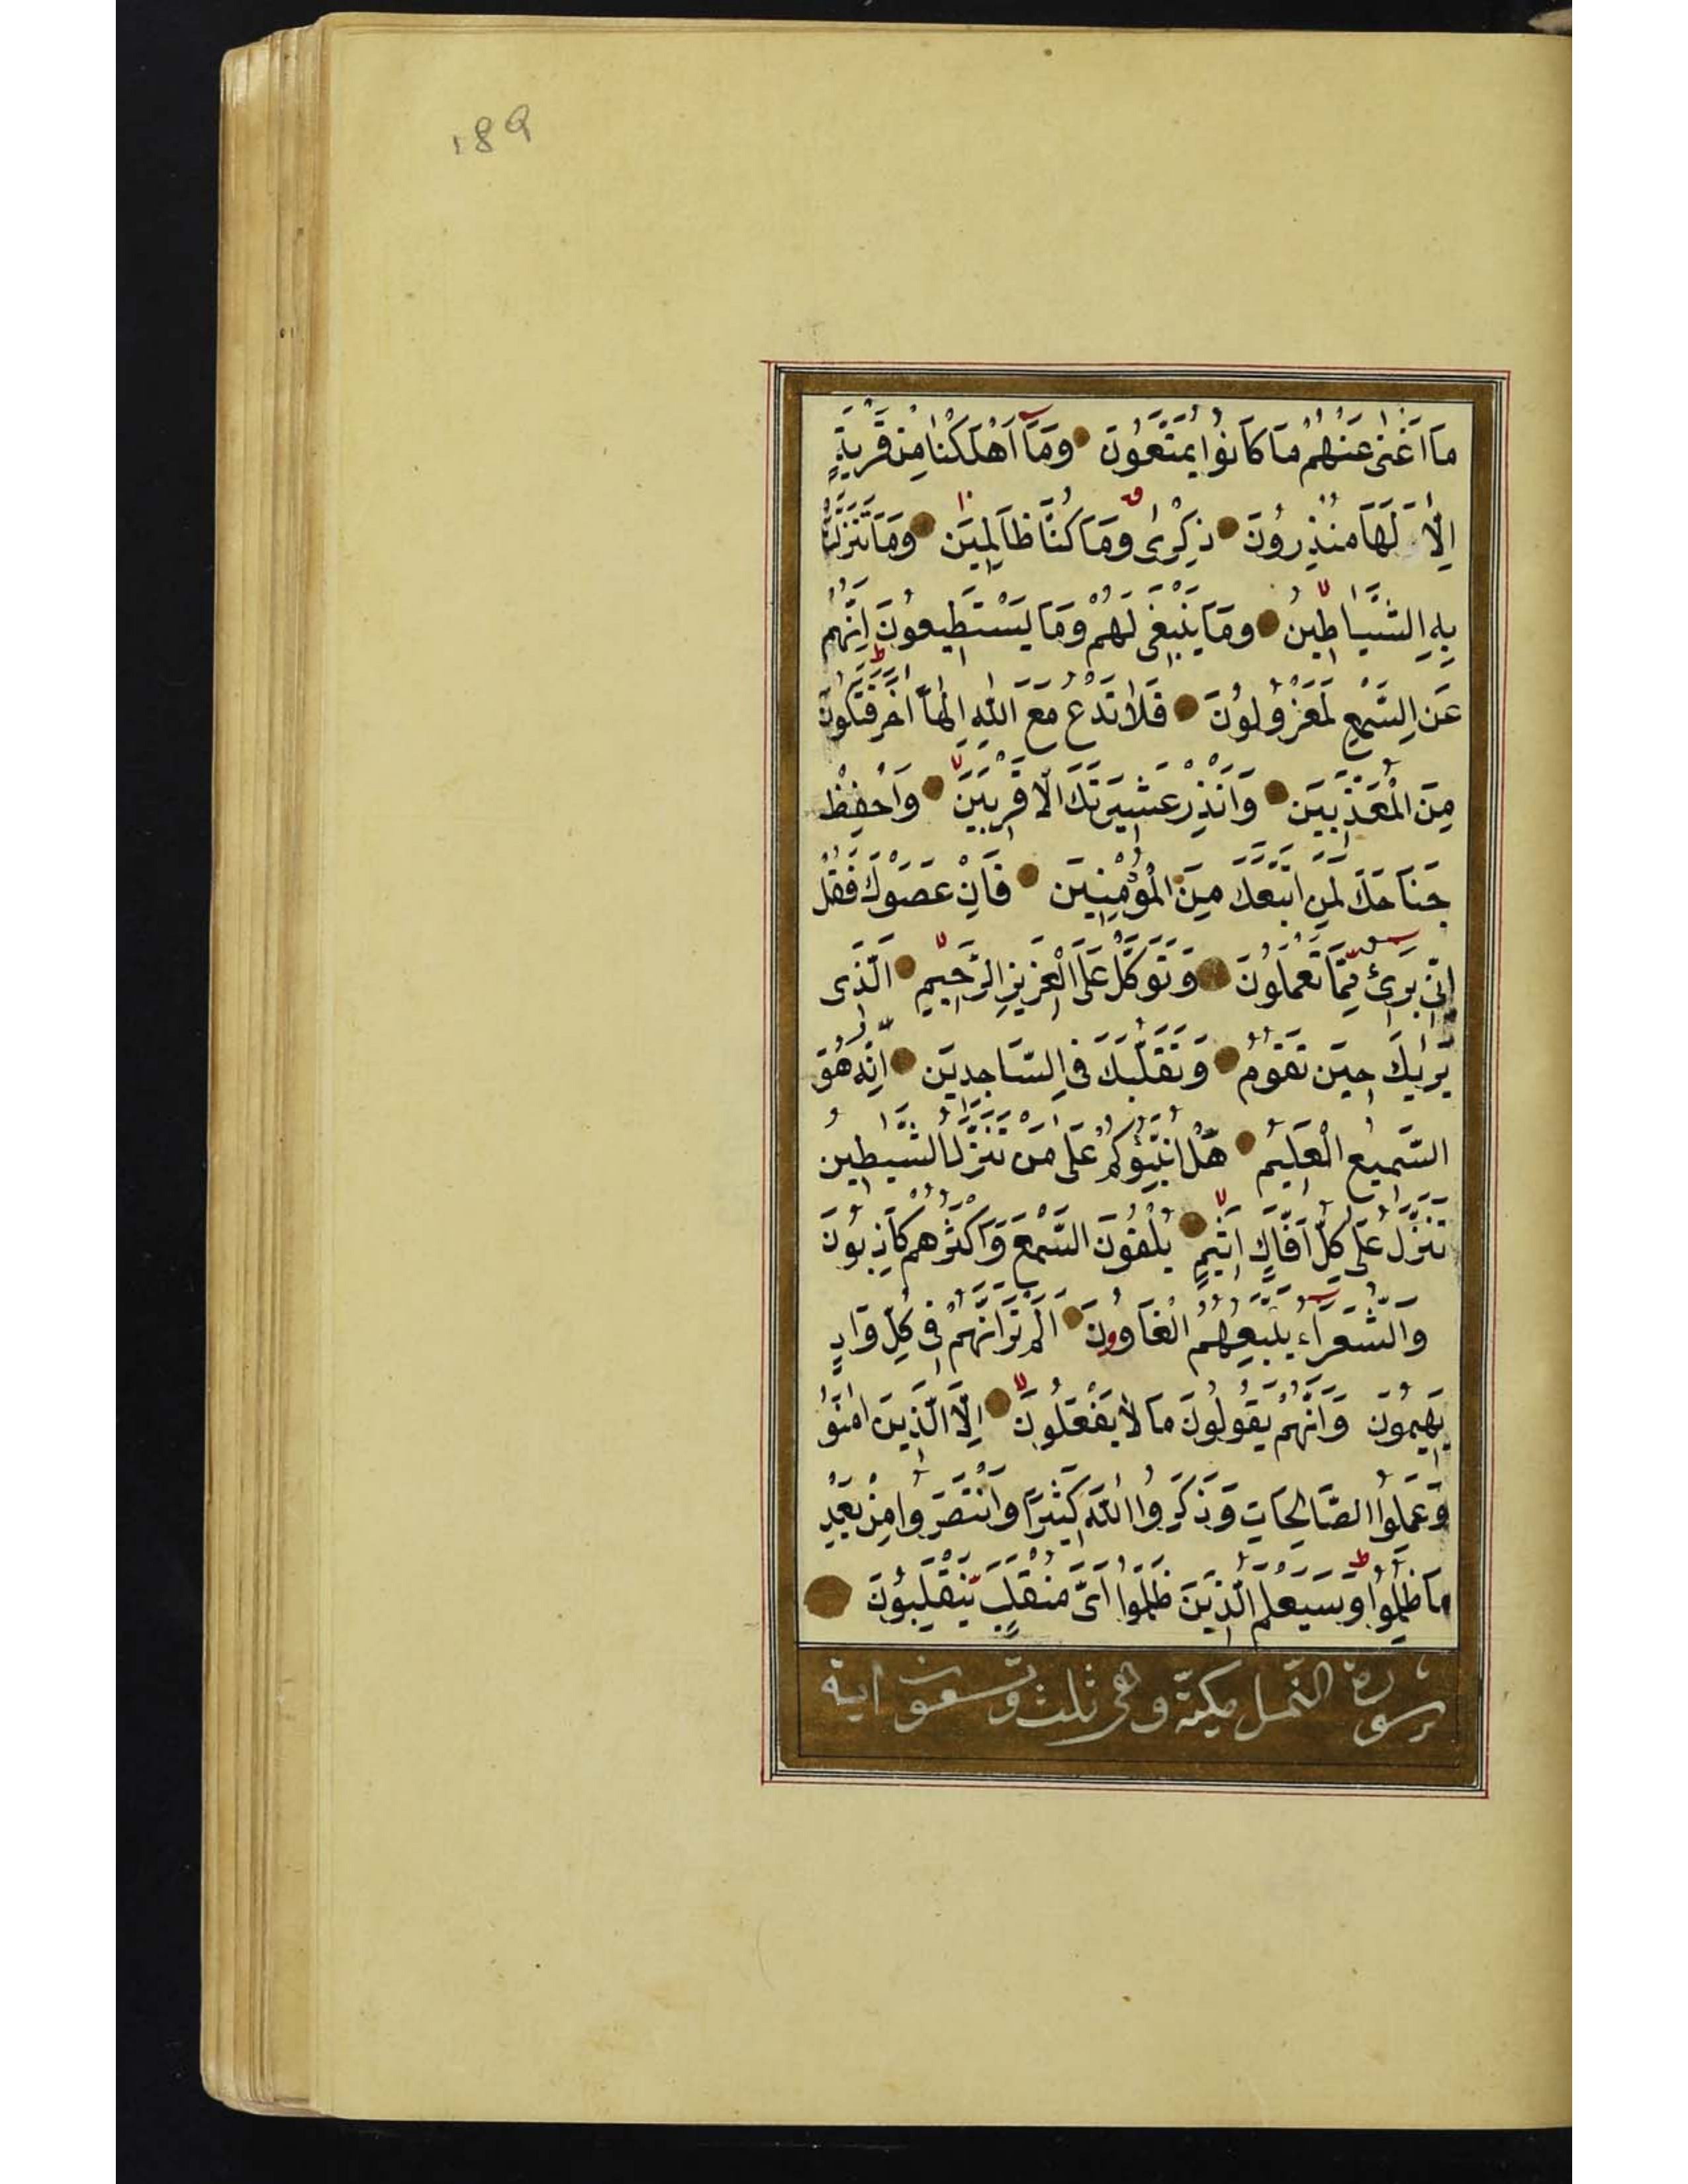 189
مَا اَغْنٰى عَنْهُمْ مَا كَانُوا يُمَتَّعُونَ وَمَٓا اَهْلَكْنَا مِنْ قَرْيَةٍ
اِلَّا لَهَا مُنْذِرُونَ ذِكْرٰى وَمَا كُنَّا ظَالِمِينَ وَمَا تَنَزَّلَتْ
بِهِ الشَّيَاطِينُ وَمَا يَنْبَغِى لَهُمْ وَمَا يَسْتَطِيعُونَ اِنَّهُمْ
عَنِ السَّمْعِ لَمَعْزُولُونَ فَلَا تَدْعُ مَعَ اللّٰهِ اِلٰهًا اٰخَرَ فَتَكُونَ
مِنَ الْمُعَذَّبِينَ وَاَنْذِرْ عَشِيرَتَكَ الْاَقْرَبِينَ وَاخْفِضْ
جَنَاحَكَ لِمَنِ اتَّبَعَكَ مِنَ الْمُؤْمِنِينَ فَاِنْ عَصَوْكَ فَقُلْ
اِنِّى بَرِىٓئٌ مِمَّا تَعْمَلُونَ وَتَوَكَّلْ عَلَى الْعَزِيزِ الرَّحِيمِ الَّذِى
يَرٰيكَ حِينَ تَقُومُ وَتَقَلُّبَكَ فِى السَّاجِدِينَ اِنَّهُ هُوَ
السَّمِيعُ الْعَلِيمُ هَلْ اُنَبِّئُكُمْ عَلٰى مَنْ تَنَزَّلُ الشَّيٰطِينُ
تَنَزَّلُ عَلٰى كُلِّ اَفَّاكٍ اَثِيمٍ يُلْقُونَ السَّمْعَ وَاَكْثَرُهُمْ كَاذِبُونَ
وَالشُّعَرَٓاءُ يَتَّبِعُهُمُ الْغَاوُونَ اَلَمْ تَرَ اَنَّهُمْ فِى كُلِّ وَادٍ
يَهِيمُونَ وَاَنَّهُمْ يَقُولُونَ مَا لَا يَفْعَلُونَ اِلَّا الَّذِينَ اٰمَنُوا
وَعَمِلُوا الصَّالِحَاتِ وَذَكَرُوا اللّٰهَ كَثِيرًا وَانْتَصَرُوا مِنْ بَعْدِ
مَا ظُلِمُوا وَسَيَعْلَمُ الَّذِينَ ظَلَمُوا اَىَّ مُنْقَلَبٍ يَنْقَلِبُونَ
سورة النّمل مكيّة وهى ثلث وتسعون اية